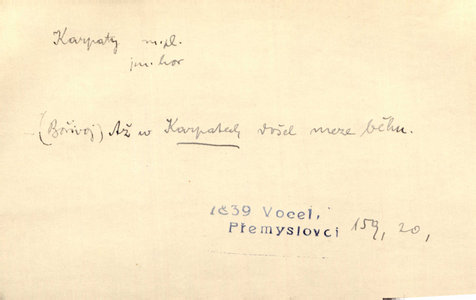 Karpaty m.pl.
jm. hor
(Bořivoj) Až w Karpatech došel meze běhu.
1839 Vocel,
Přemyslovci 159, 20,